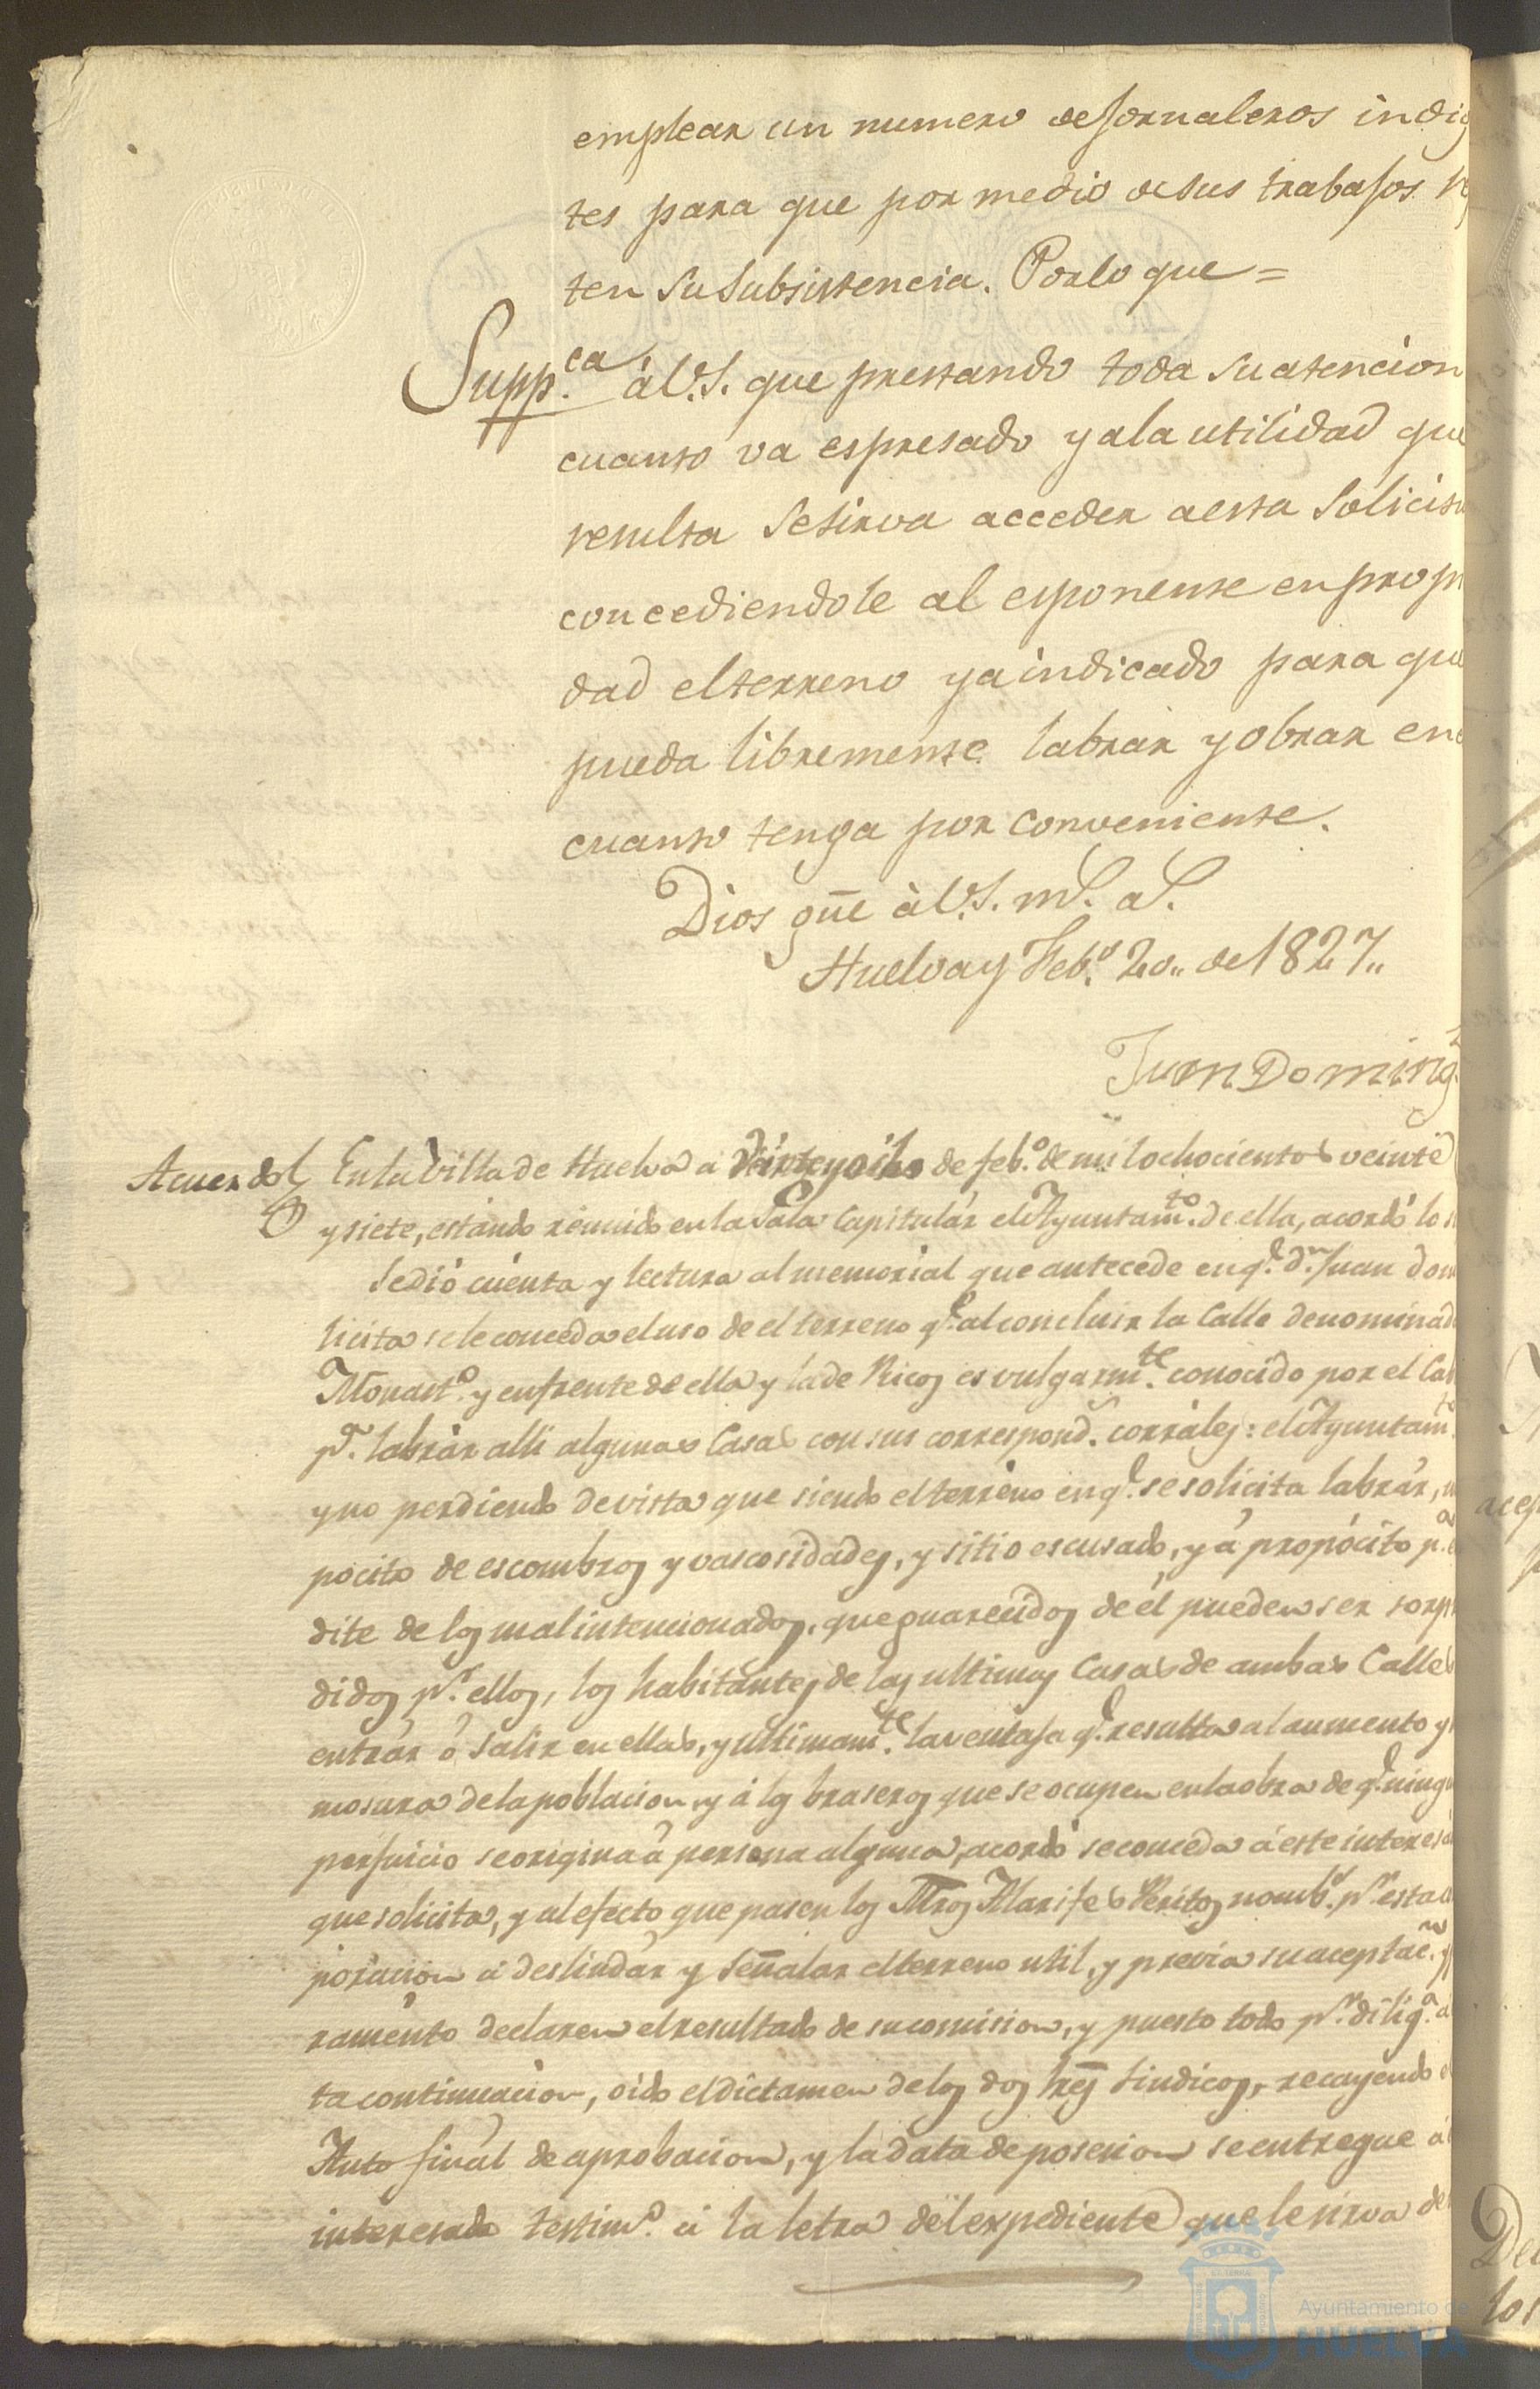 emplear un numero de Jornaleros indig
tes para que por medio de sus trabajos
ten su subsistencia. Por lo que =
Supp.ca à V.S. que prestando toda su atencion
cuanto va espresado y a la utilidad que
resulta se sirva acceder a esta solicitu
concediendole al esponente en propi
dad el terreno ya indicado para que
pueda libremente labrar y obrar en e
cuanto tenga por conveniente.
Dios gue à V.S. ms. as.
Huelva y Feb.o 20,, de 1827,,
Juan Doming
Acuerdo En la Villa de Huelva a veinte y ocho de feb.o de mil ochocientos veinte
y siete, estando reunido en la Sala Capitulár el Ayuntam.to de ella, acordó lo
Se dió cuenta y lectura al memorial que antecede en q.e d.n Juan Dom
licita se le conceda el uso de el terreno q.e al concluir la Calle denominad
Monast.o y enfrente de ella y la de Ricos es vulgarm.te conocido por el Ca
p.a labrár alli algunas Casas con sus correspond.s corráles: el Ayuntam.to
y no perdiendo de vista que siendo el terreno en q.e se solicita labrár,
pocito de escombros y vascosidades, y sitio escusado, y á propócito p.a
dite de los mal intencionados, que guarecidos de él pueden ser sorp
didos p.r ellos, los habitantes de las ultimas Casas de ambas Calles
entrár ó salir en ellas, y ultimam.te la ventaja q.e resulta al aumento y
mosura de la poblacion, y á los braseros que se ocupen en la obra de q.e ningu
perjuicio se origina á persona alguna, acordó se conceda á este interesa
que solicita, y al efecto que pasen los Mros Alarifes Peritos nomb.s p.r esta
poracion á deslindár y señalar el terreno util, y previa su aceptac.n y
ramento declaren el resultado de su comision, y puesto todo p.r dilig.a a
ta continuacion, oido el dictamen de los dos Sres Sindicos, recayendo e
Auto finál de aprobacion, y la data de posesion se entregue al
interesado testim.o á la letra del expediente que le sirva de
Ayuntamiento de
HUELVA